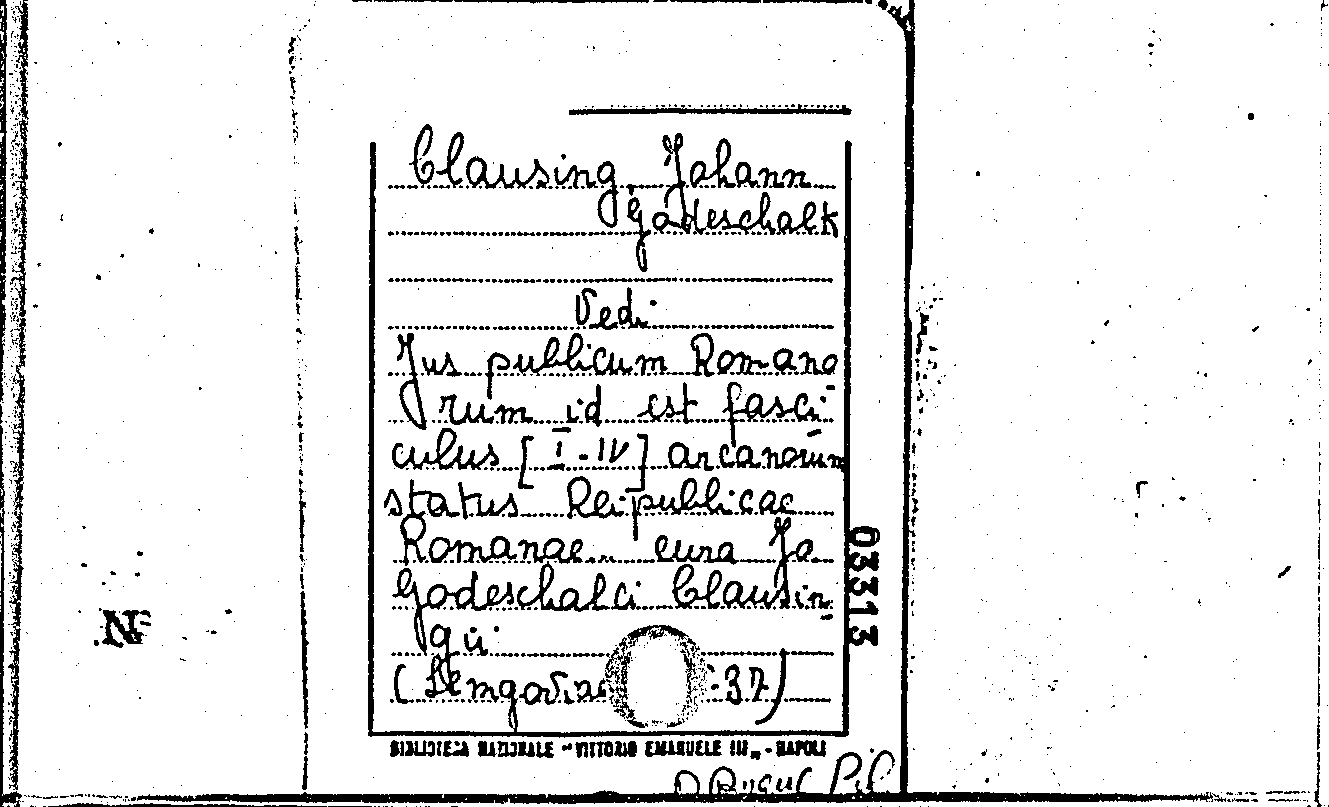 Clausing, Johann
Godeschalk
Vedi
Jus publicum Romano
rum id est fasci-
culus [I-IV] arcanorum
status Reipublicae
Romanae... cura Jo
Godeschalci Clausin-
gii
(Lemgoviae -37)
03313
BIBLIOTECA NAZIONALE "VITTORIO EMANUELE III" - NAPOLI
NF